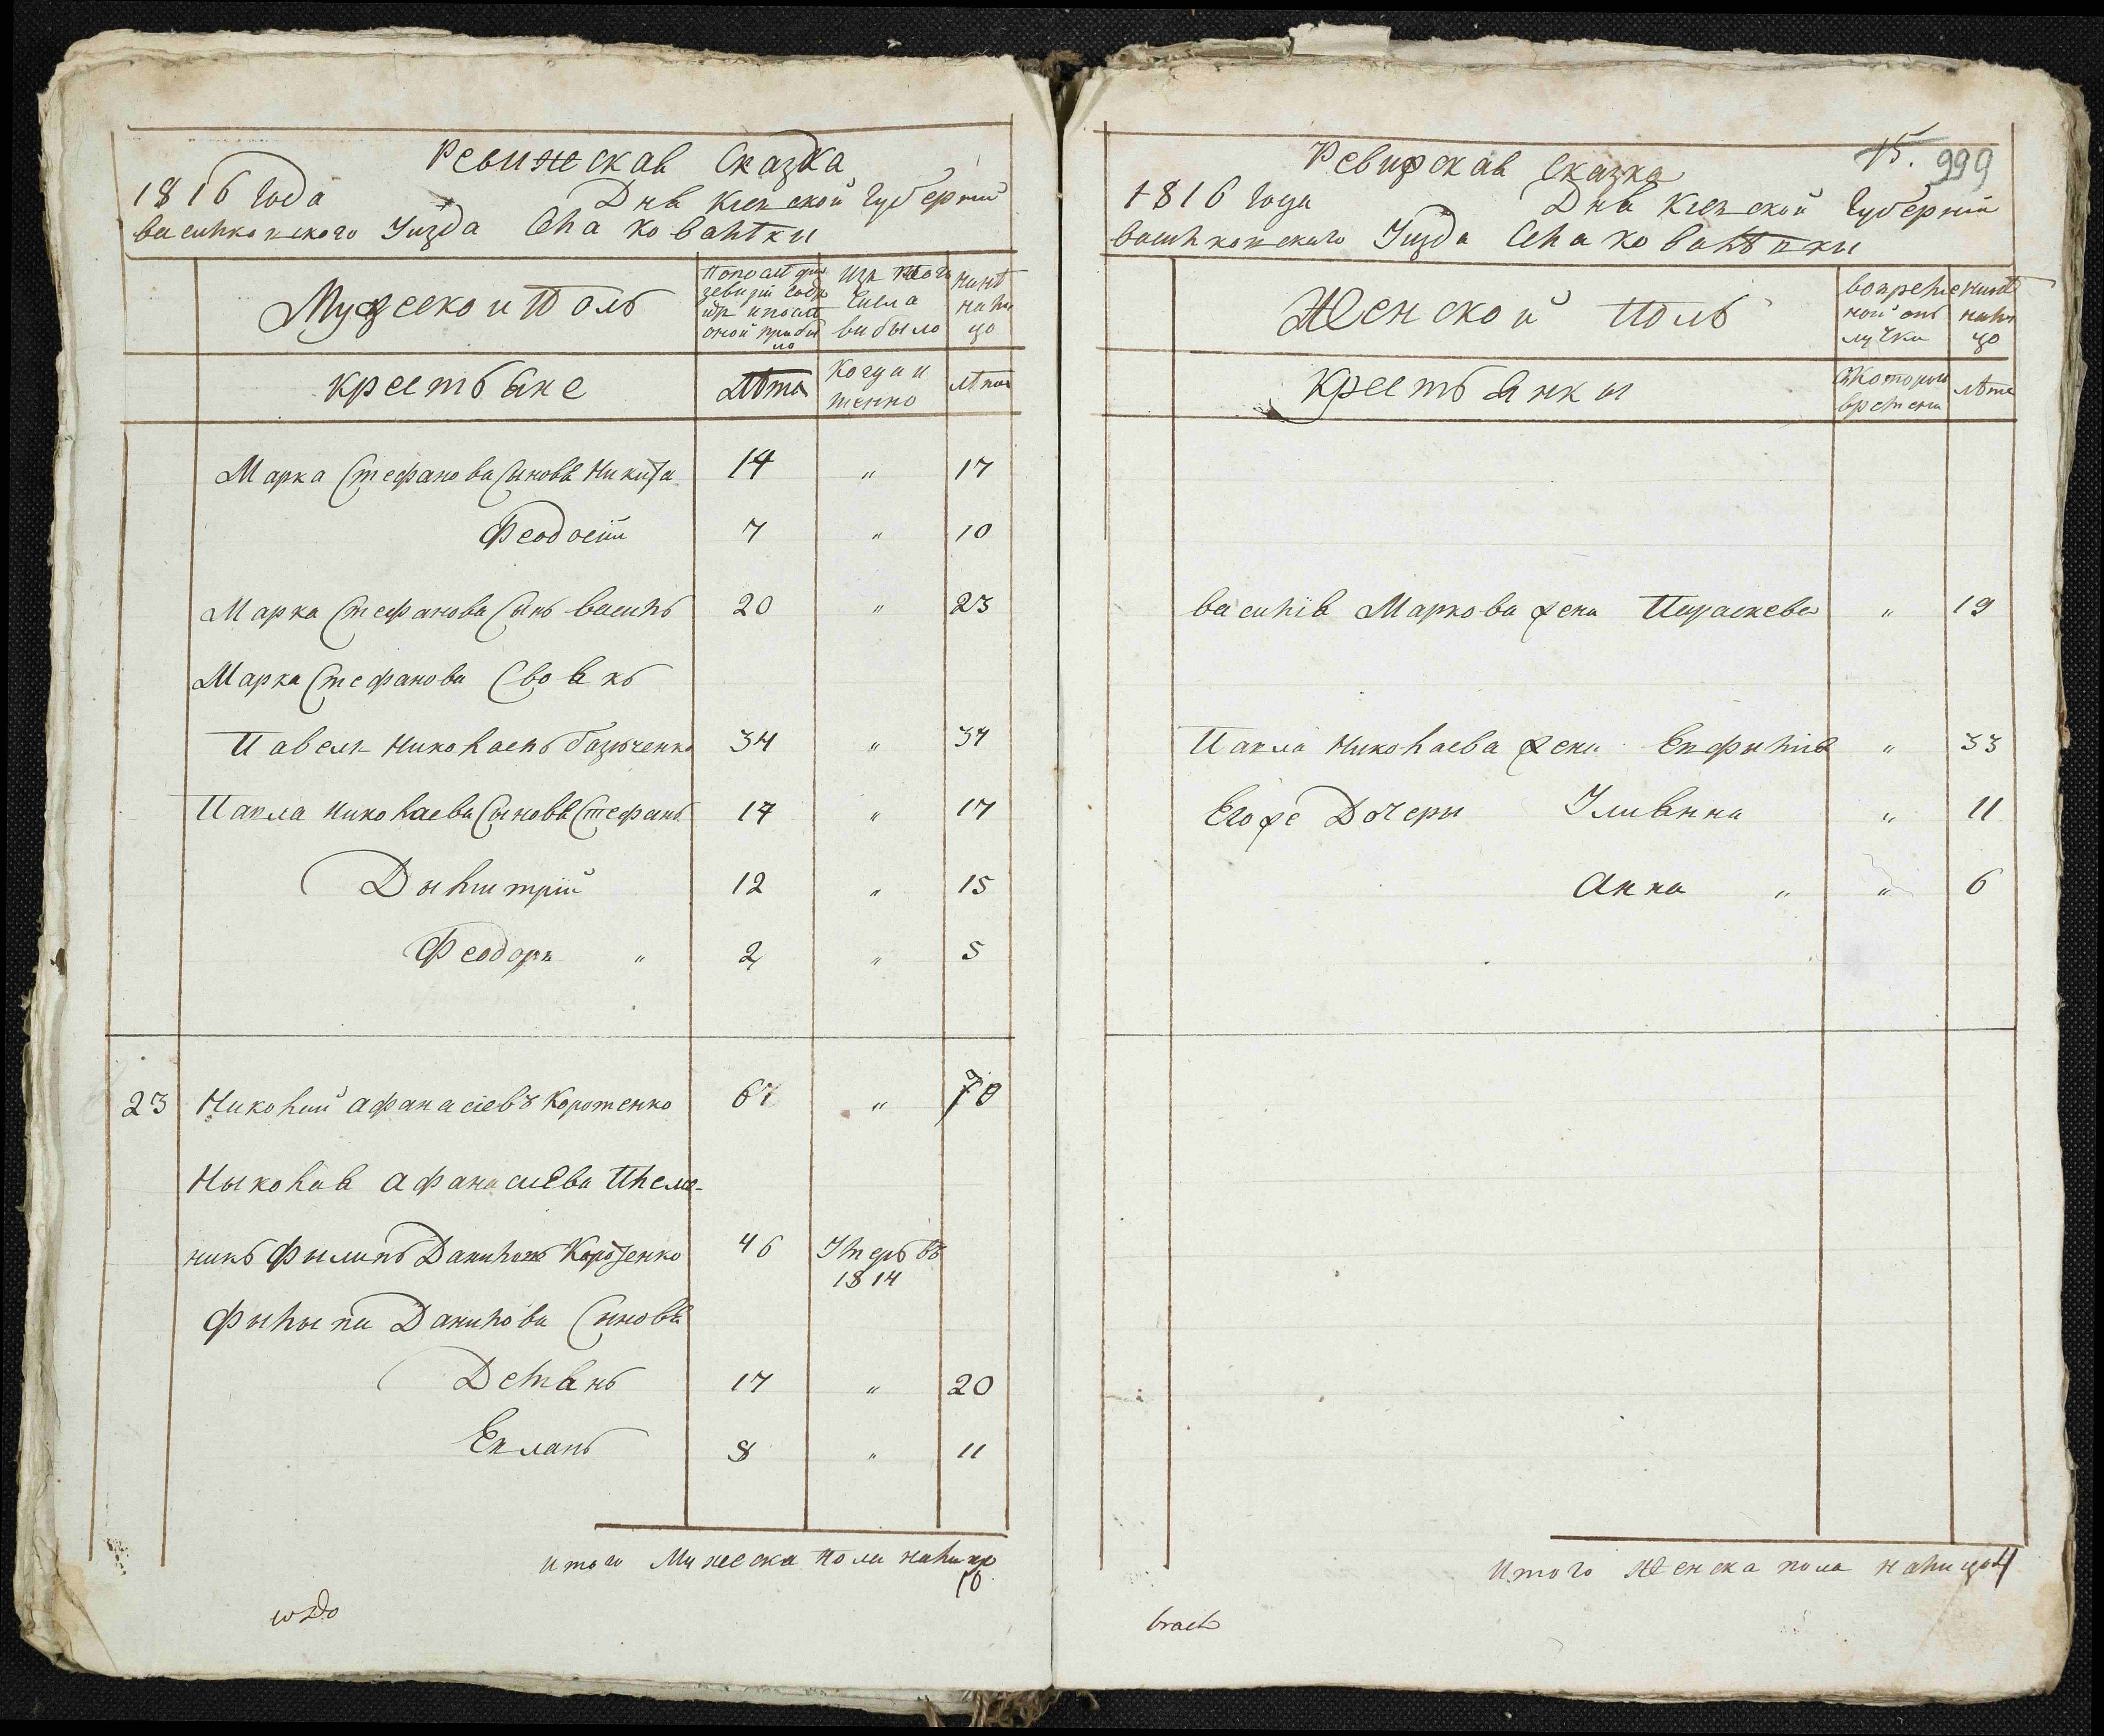 Ревижская Сказка
1816 Года Дня Киевской Губернии
василковского Уизда Села Ковалѣвки
Мужеской Полъ
По послѣдней ревизіи состояло и послѣ оной прибыло
Изъ того числа выбыло
нынѣ налицо
крестьяне
Лѣта
Когда именно
лѣта
Марка Стефанова Сыновя Никита 14 " 17
Феодосій 7 " 10
Марка Стефанова Сынъ василь 20 " 23
Марка Стефанова Своякъ
Павелъ Николаевъ Базюченко 34 " 37
Павла Николаева Сыновя Стефанъ 14 " 17
Дымитрій 12 " 15
Феодоръ " 2 " 5
23 Николай Афанасіевъ Коротенко 67 " 70
Ныколая Афанасиева Племя-
никъ Филипъ Даниловъ Коротенко 46 Умеръ въ 1814
Филыпа Данилова Сыновя
Демянъ 17 " 20
Евланъ 8 " 11
Итого Мужеска пола налицо
10
Ревизская Сказка
15. 999
1816 Года Дня Киевской Губерніи
василковскаго Уизда Села Ковалѣвки
Женской Полъ
во временной отлучки
нынѣ налицо
Крестьянки
Скоторого времени
лѣта
василія Маркова жена Параскева " 19
Павла Николаева жена Евфылія " 33
Егоже Дочери Улиянна " 11
Анна " " 6
Итого женска пола налицо 4